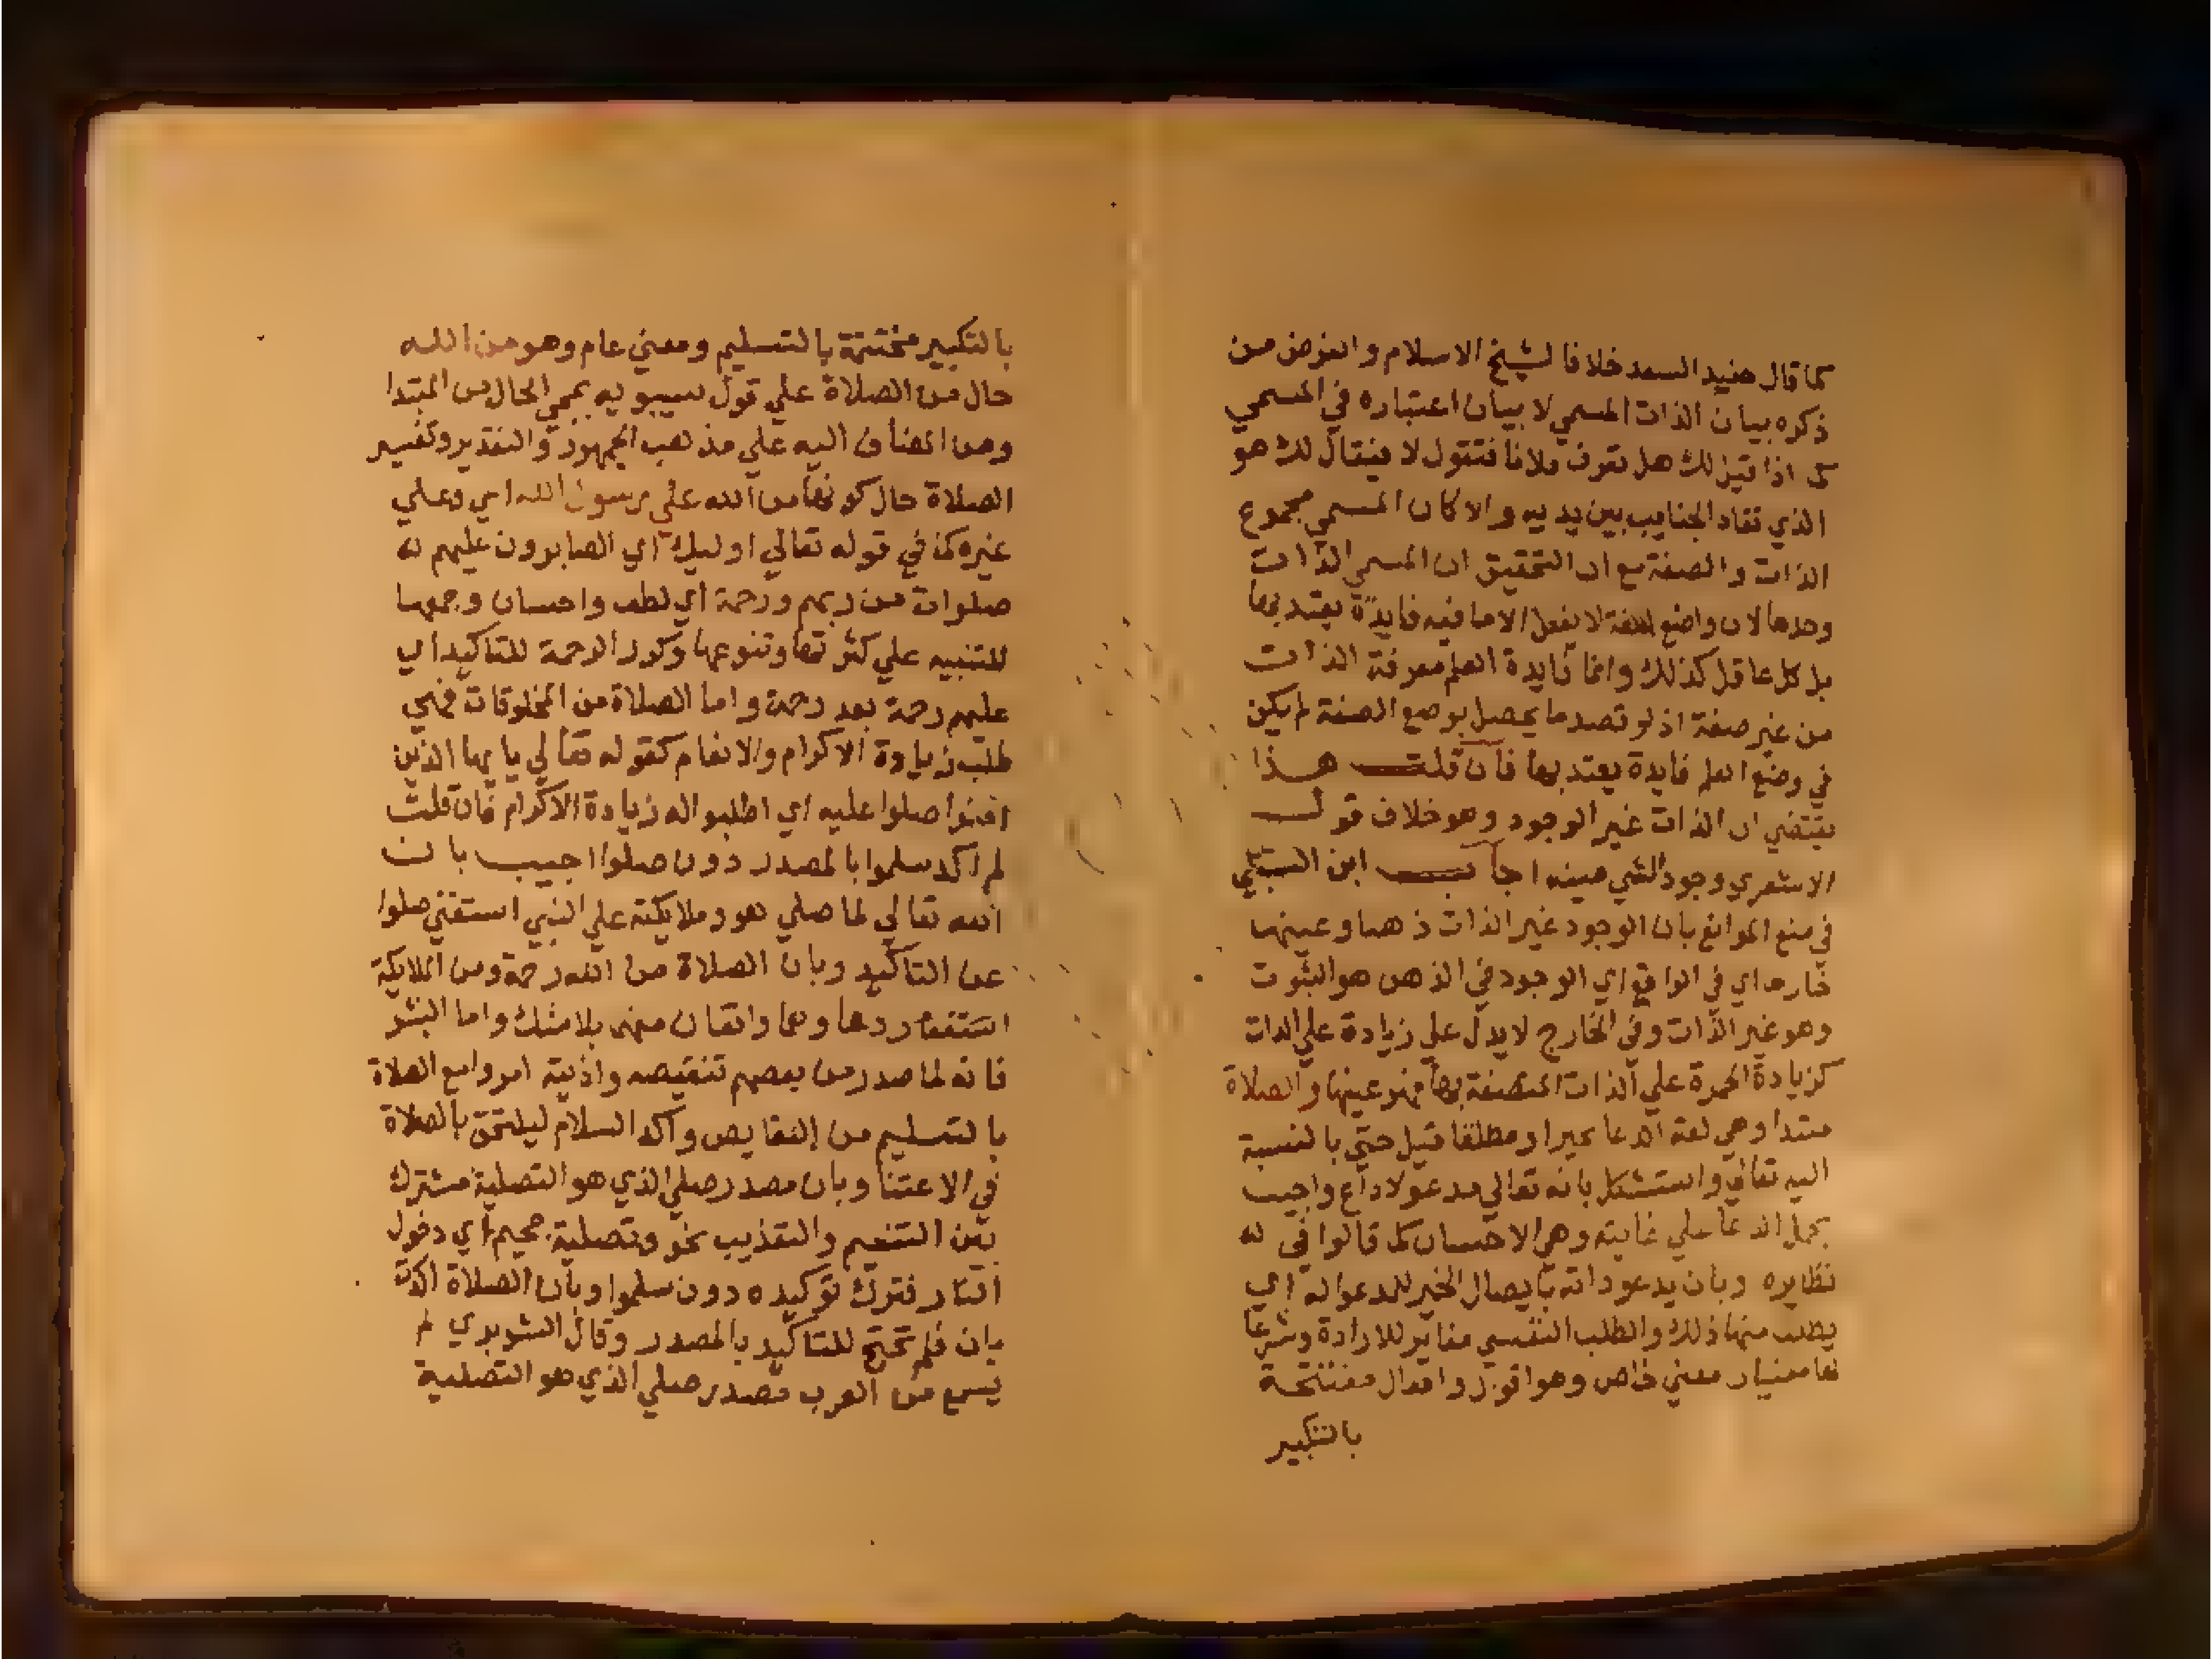 كما قال حفيد السعد خلافا لشيخ الاسلام والغرض من
ذكره بيان الذات المسمي لا بيان اعتباره في المسمي
كما اذا قيل لك هل تعرف فلانا فتقول لا فيقال لك هو
الذي تقاد الجنايب بين يديه والا كان المسمي مجموع
الذات والصفة مع ان التحقيق ان المسمي الذات
وحدها لان واضع اللغة لا يفعل الا ما فيه فايدة يعتد بها
بل كل عاقل كذلك وانما فايدة العلم معرفة الذات
من غير صفة اذ لو قصد ما يحصل بوضع الصفة لم يكن
في وضع العلم فايدة يعتد بها فان قلت هذا
يقتضي ان الذات غير الوجود وهو خلاف قول
الاشعري وجود الشي عينه اجاب ابن السبكي
في منع الموانع بان الوجود غير الذات ذهنا وعينها
خارجا اي في الواقع اي الوجود في الذهن هو الثبوت
وهو غير الذات وفي الخارج لا يدل علي زيادة علي الذات
كزيادة الحمرة علي الذات المتصفة بها فهو عينها والصلاة
مبتدا وهي لغة الدعا بخير او مطلقا قيل حتي بالنسبة
اليه تعالي واستشكل بانه تعالي مدعو لا داع واجيب
بحمل الدعا علي غايته وهي الاحسان كما قالوا في
نظايره وبان يدعو ذاته بايصال الخير للمدعو له اي
يطلب منها ذلك والطلب النفسي مغاير للارادة وشرعا
لها معنيان معني خاص وهو اقوال وافعال مفتتحة
بالتكبير
بالتكبير مختتمة بالتسليم ومعني عام وهو من الله
حال من الصلاة علي قول سيبويه بمجي الحال من المبتدا
ومن المضاف اليه علي مذهب الجمهور والتقدير وتفسير
الصلاة حال كونها من الله علي رسول الله اي وعلي
غيره كما في قوله تعالي اوليك اي الصابرون عليهم
صلوات من ربهم ورحمة اي لطف واحسان وجمعها
للتنبيه علي كثرتها وتنوعها وكرر الرحمة للتاكيد اي
عليهم رحمة بعد رحمة واما الصلاة من المخلوقات فهي
طلب زيادة الاكرام والانعام كقوله تعالي يا يها الذين
امنوا صلوا عليه اي اطلبوا له زيادة الاكرام فان قلت
لم اكد سلموا بالمصدر دون صلوا اجيب بان
الله تعالي لما صلي هو وملايكته علي النبي استغني صلوا
عن التاكيد وبان الصلاة من الله رحمة ومن الملايكة
استغفار ودعا وهما واقعان منهم بلا شك واما البشر
فانه لما صدر من بعضهم تنقيصه واذيته امروا مع الصلاة
بالتسليم من النقايص واكد السلام ليلتحق بالصلاة
في الاعتنا وبان مصدر صلي الذي هو التصلية مشترك
بين التنعيم والتعذيب نحو وتصلية جحيم اي دخول
النار فترك توكيده دون سلموا وبان الصلاة اكدت
بان فلم تحتج للتاكيد بالمصدر وقال الشوبري لم
يسمع من العرب مصدر صلي الذي هو التصلية